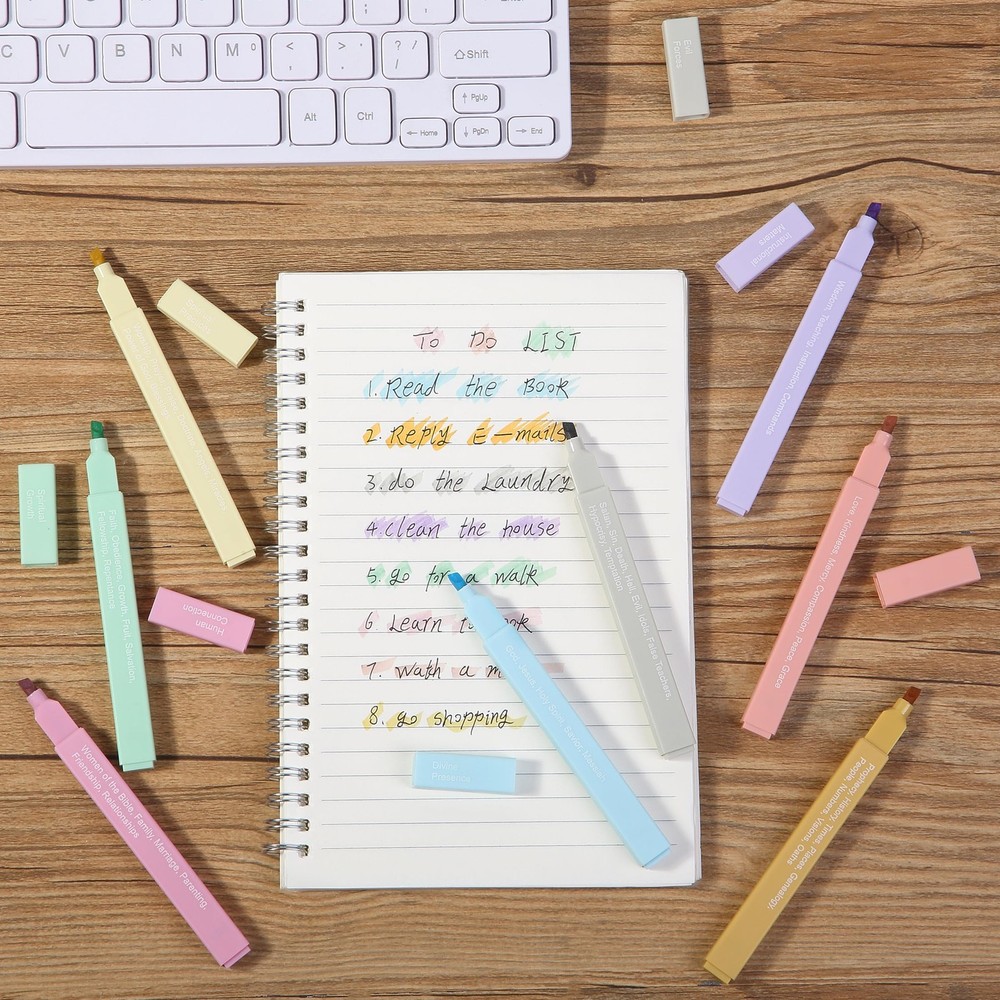 Enter
C V B N M 0 < , > . ? /
Shift
PgUp
Alt Ctrl
Home PgDn End
Evil
Forces
Instructional
Matters
Wisdom, Teaching, Instruction, Commands
TO DO LIST
1. Read the Book
2. Reply E-mails
3. do the Laundry
4. clean the house
5. go for a walk
6. Learn
7. Watch a
8. go shopping
Satan, Sin, Death, Hell, Evil, Idols, False Teachers,
Hypocrisy, Temptation
Spiritual
Growth
Faith, Obedience, Growth, Fruit, Salvation,
Fellowship, Repentance
Human
Connection
Love, Kindness, Mercy, Compassion, Peace, Grace
God, Jesus, Holy Spirit, Savior, Messiah
Divine
Presence
Women of the Bible, Family, Marriage, Parenting,
Friendship, Relationships
Prophecy, History, Times, Places, Genealogy,
People, Numbers, Visions, Oaths